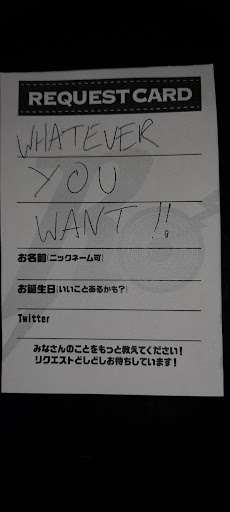 REQUEST CARD
WHATEVER
YOU
WANT !!
お名前(ニックネーム可)
お誕生日(いいことあるかも?)
Twitter
みなさんのことをもっと教えてください!
リクエストどしどしお待ちしています!